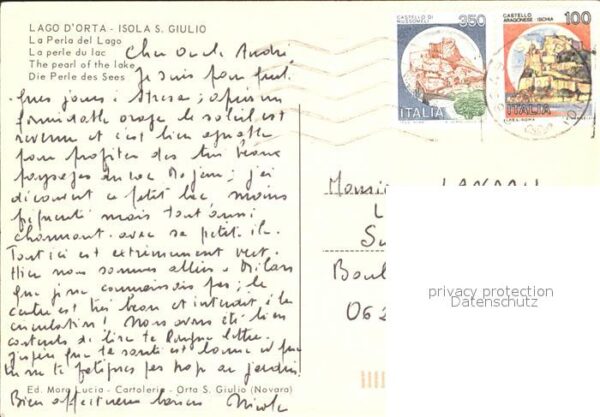 LAGO D'ORTA - ISOLA S. GIULIO
La Perla del Lago
La perle du lac
The pearl of the lake
Die Perle des Sees
Cher Oncle André
Je suis pour quel-
ques jours à Stresa ; après un
formidable orage le soleil est
revenu et c'est bien agréable
pour profiter des très beaux
paysages du lac Majeur ; j'ai
découvert ce petit lac, moins
fréquenté mais tout aussi
charmant avec sa petite île.
Tout ici est extrêmement vert.
Hier nous sommes allés à Milan
que je ne connaissais pas ; le
centre est très beau et interdit à la
circulation ! Nous avons été bien
contents de lire ta longue lettre.
J'espère que ta santé est bonne et que
tu ne te fatigues pas trop au jardin.
Ed. Mora Lucia - Cartoleria - Orta S. Giulio (Novara)
Bien affectueux baisers Nicole
CASTELLO DI
MUSSOMELI
350
ITALIA
CASTELLO
ARAGONESE ISCHIA
100
ITALIA
Monsieur
L
Su
Boul
062
privacy protection
Datenschutz